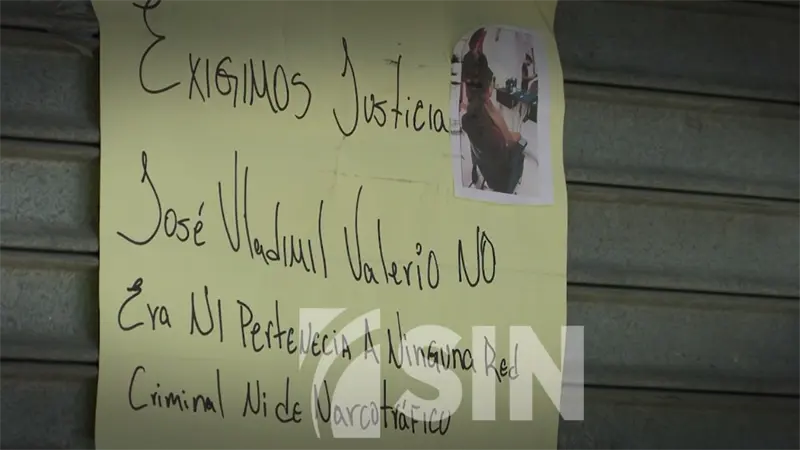 Exigimos Justicia
José Vladimil Valerio NO
Era Ni Pertenecia A Ninguna Red
Criminal Ni de Narcotráfico
SIN